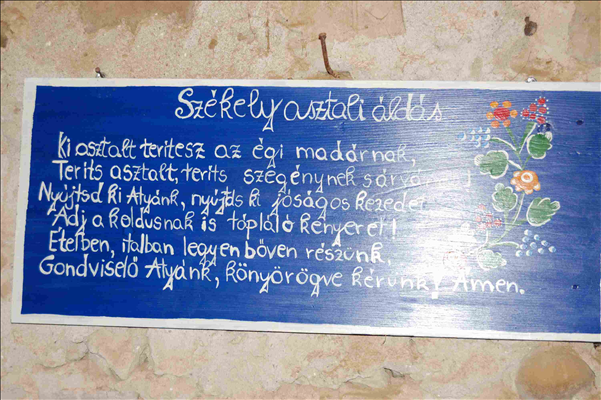 Székely asztali áldás
Ki asztalt teritesz az égi madárnak,
Terits asztalt, terits szegénynek sárvár
Nyújtsd ki Atyánk, nyújts ki jóságos kezedet
Adj a koldusnak is tápláló kenyeret!
Ételben, italban legyen bőven részünk,
Gondviselő Atyánk, könyörögve kérünk! Ámen.